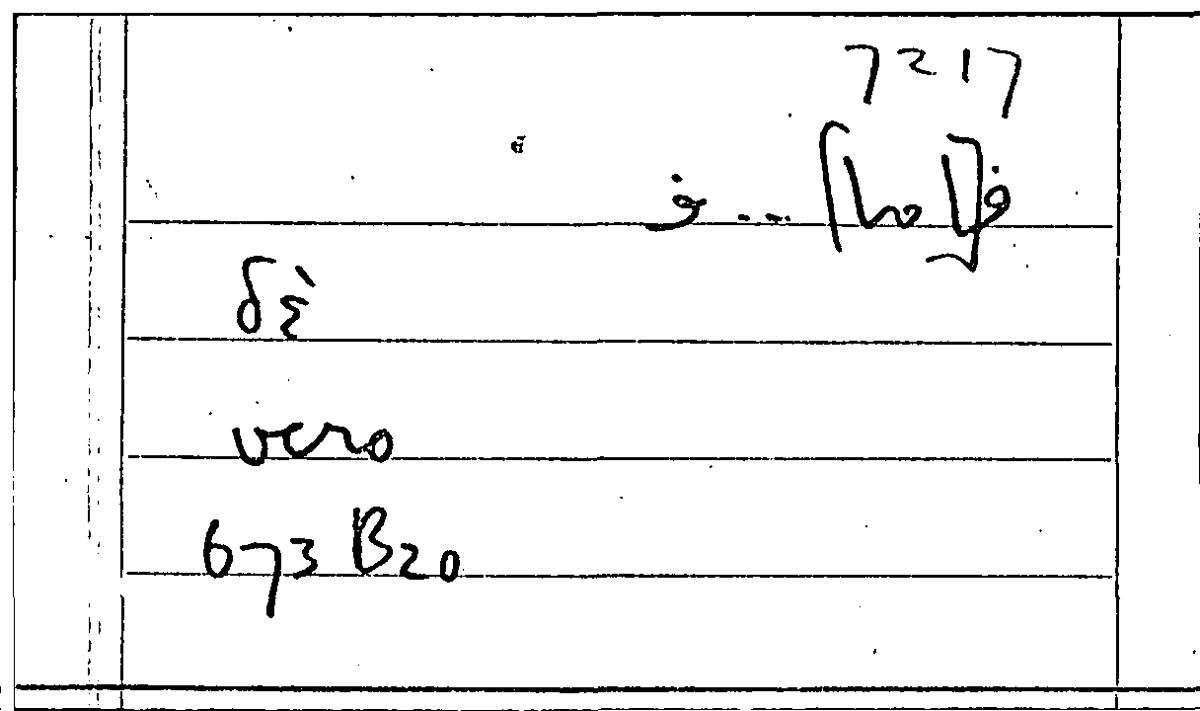 7217
δὲ
vero
673 B20